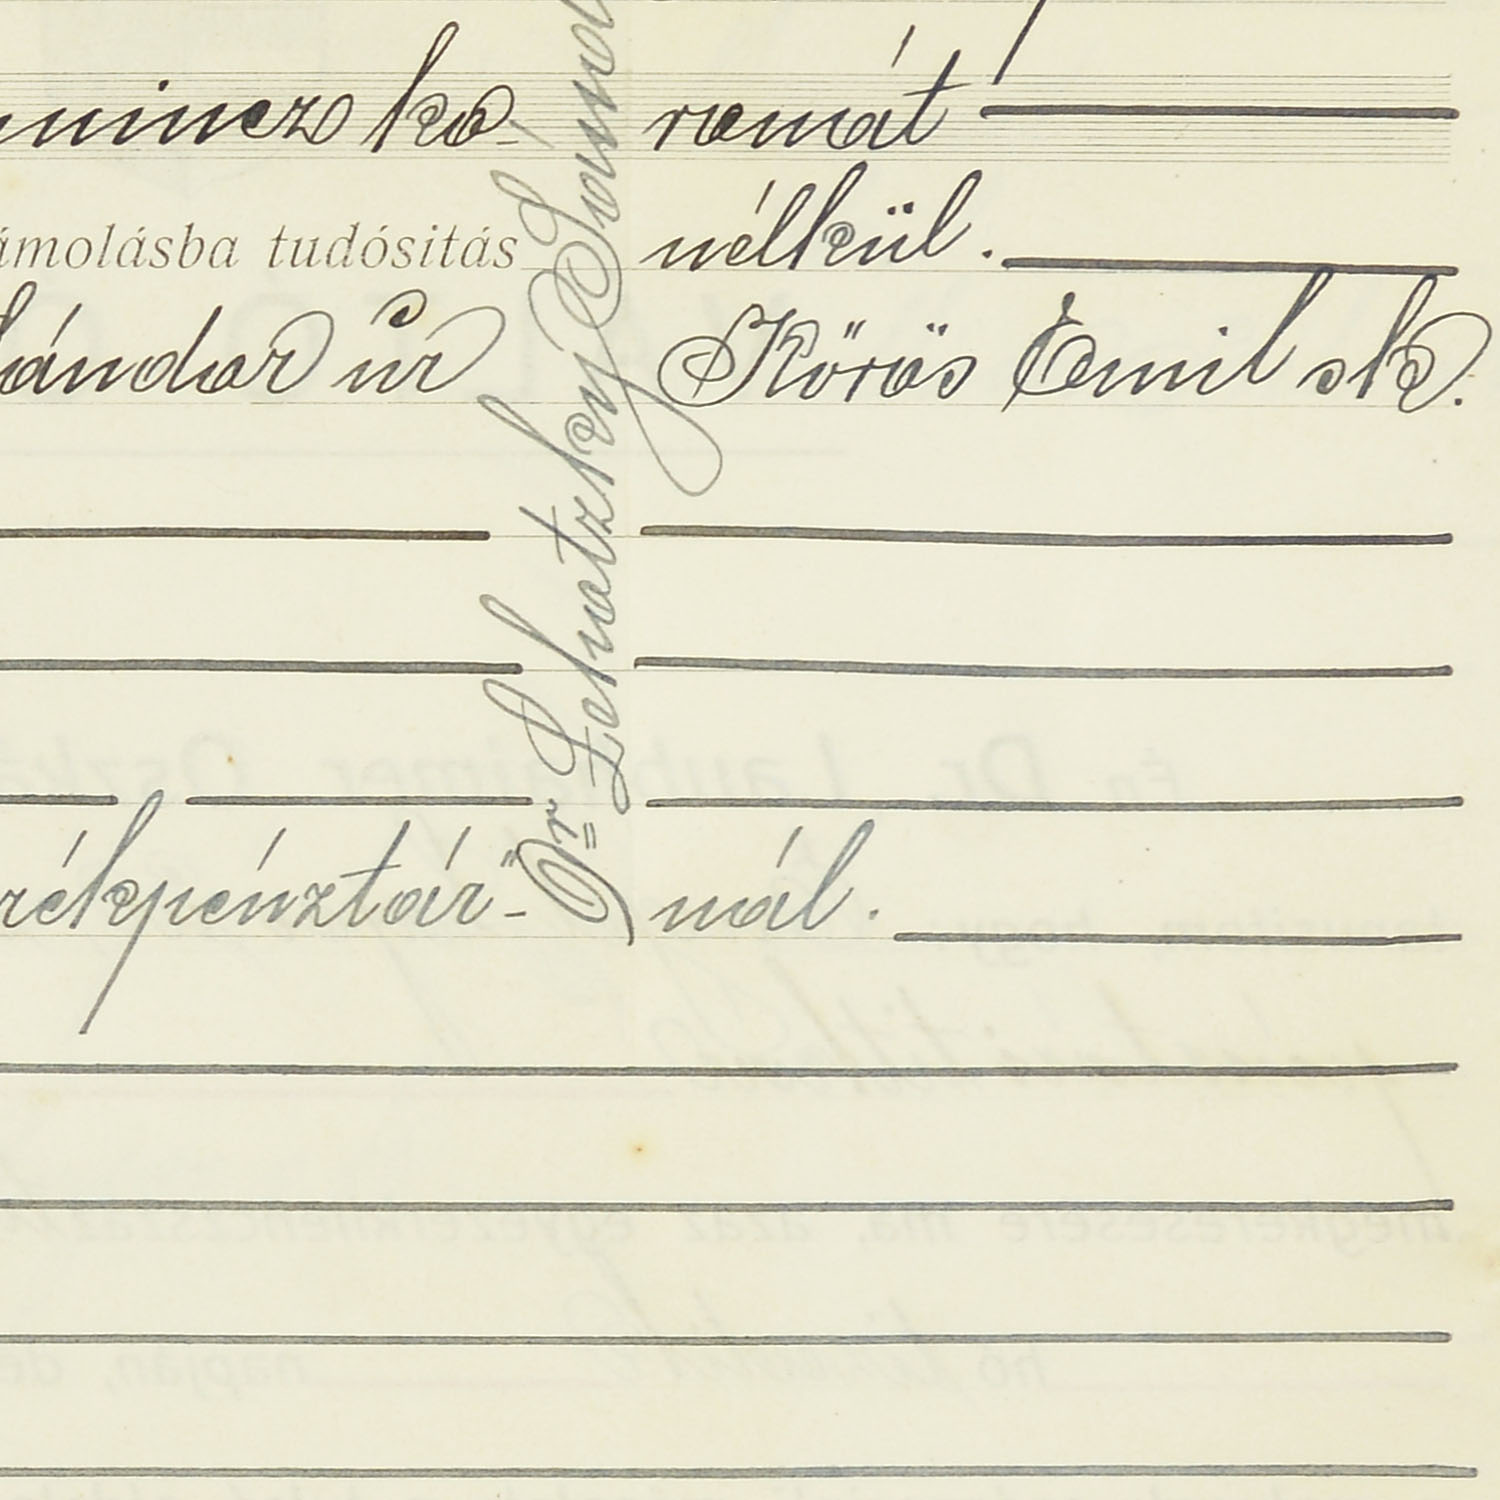 mincz ko- ronát
ámolásba tudósitás nélkül.
Sándor úr Körös Emil sk.
Dr Lehutzky Sándo
rékpénztár"- nál.